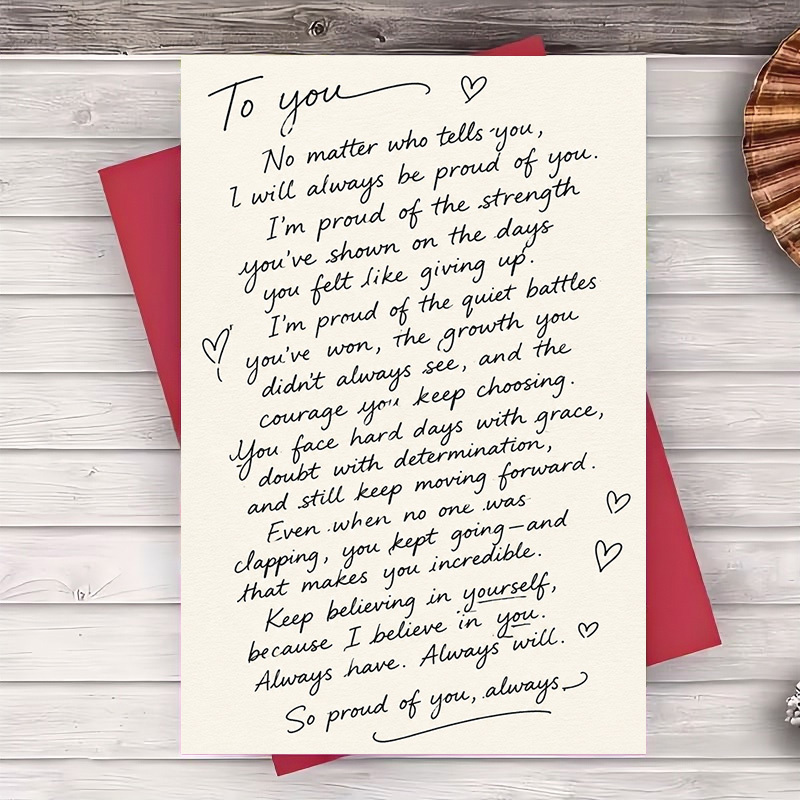 To you
No matter who tells you,
I will always be proud of you.
I'm proud of the strength
you've shown on the days
you felt like giving up.
I'm proud of the quiet battles
you've won, the growth you
didn't always see, and the
courage you keep choosing.
You face hard days with grace,
doubt with determination,
and still keep moving forward.
Even when no one was
clapping, you kept going—and
that makes you incredible.
Keep believing in yourself,
because I believe in you.
Always have. Always will.
So proud of you, always